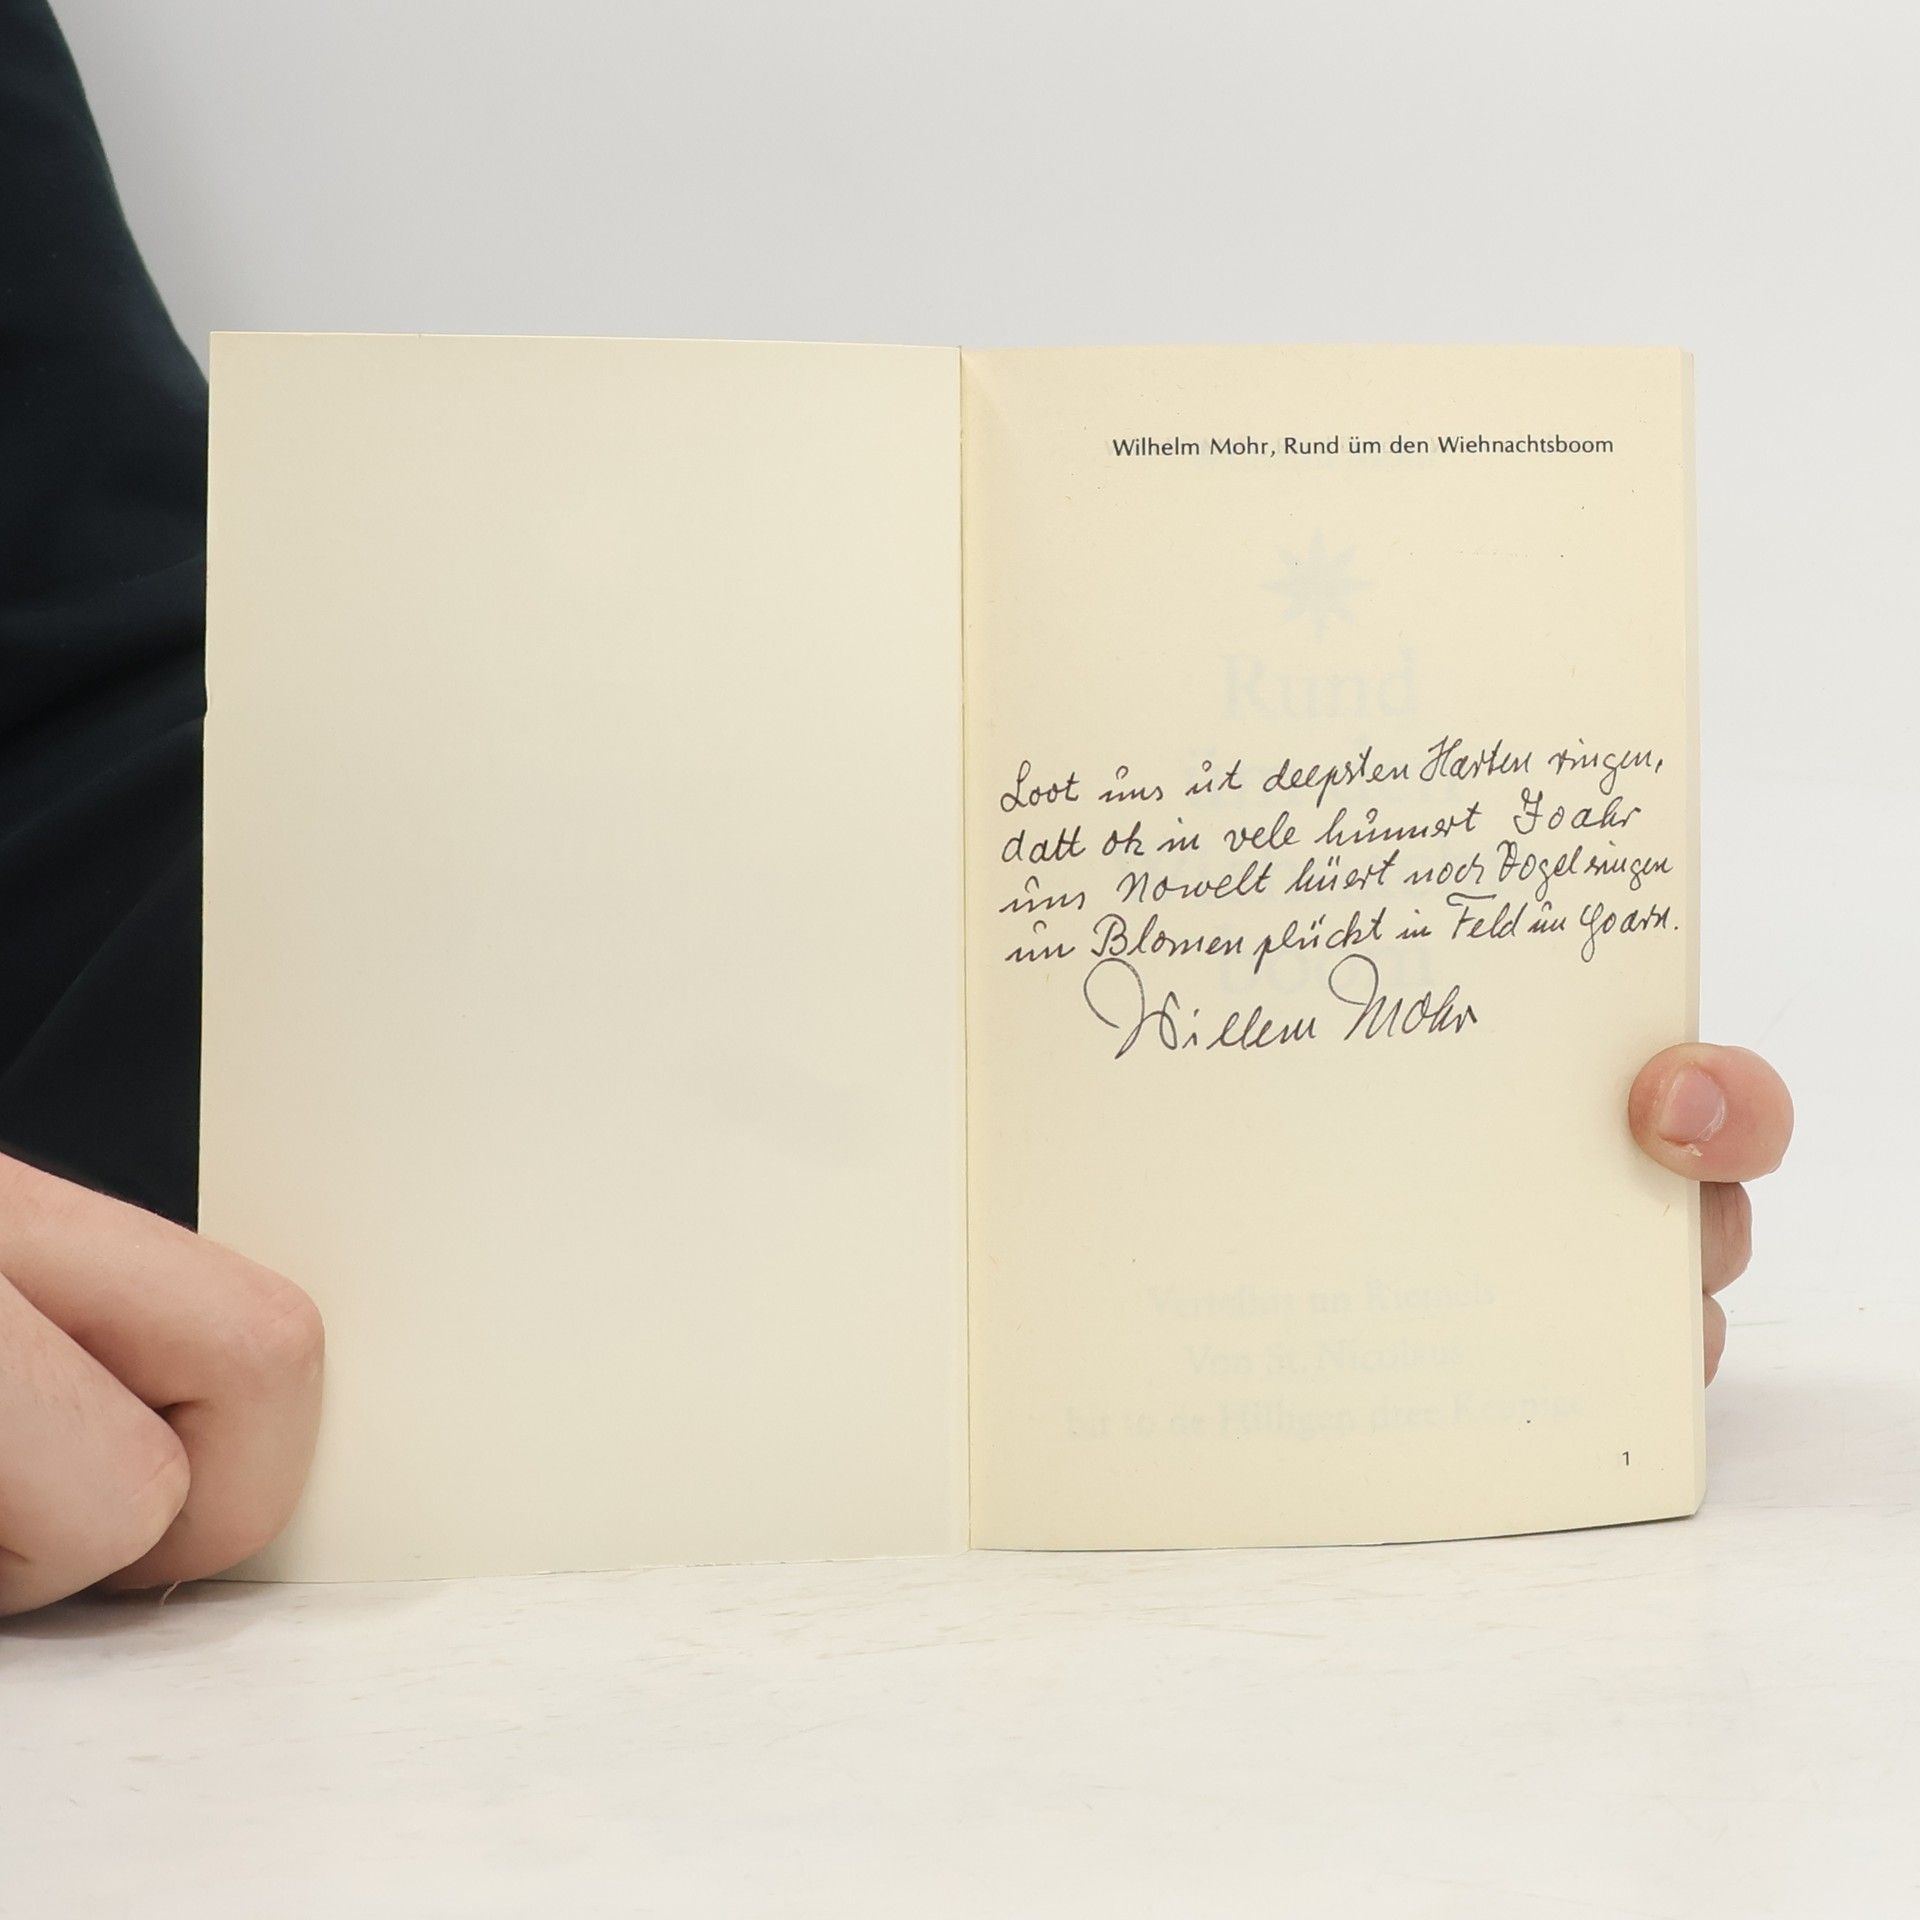 Wilhelm Mohr, Rund üm den Wiehnachtsboom
Rund
boom
Loot uns ut deepsten Harten ringen,
datt ok in vele hunnert Joahr
uns Nowelt hüert noch Vogelsingen
un Blomen plückt in Feld un Goarn.
Willem Mohr
Vertellers un Riemels
Von St. Nicolaus
bit to de Hilligen dree Keunige
1